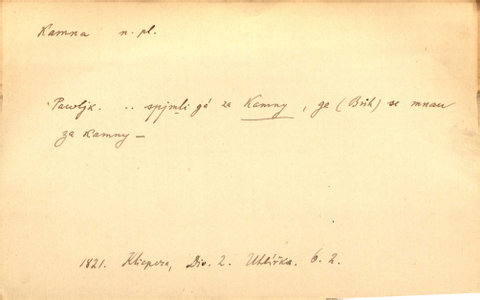 Kamna n. pl.
Pawljk. .. spjmli gá za Kamny, ge (Bůh) se mnau
za Kamny —
1821. Klicpera, Div. 2. Uhlířka. 6. 2.